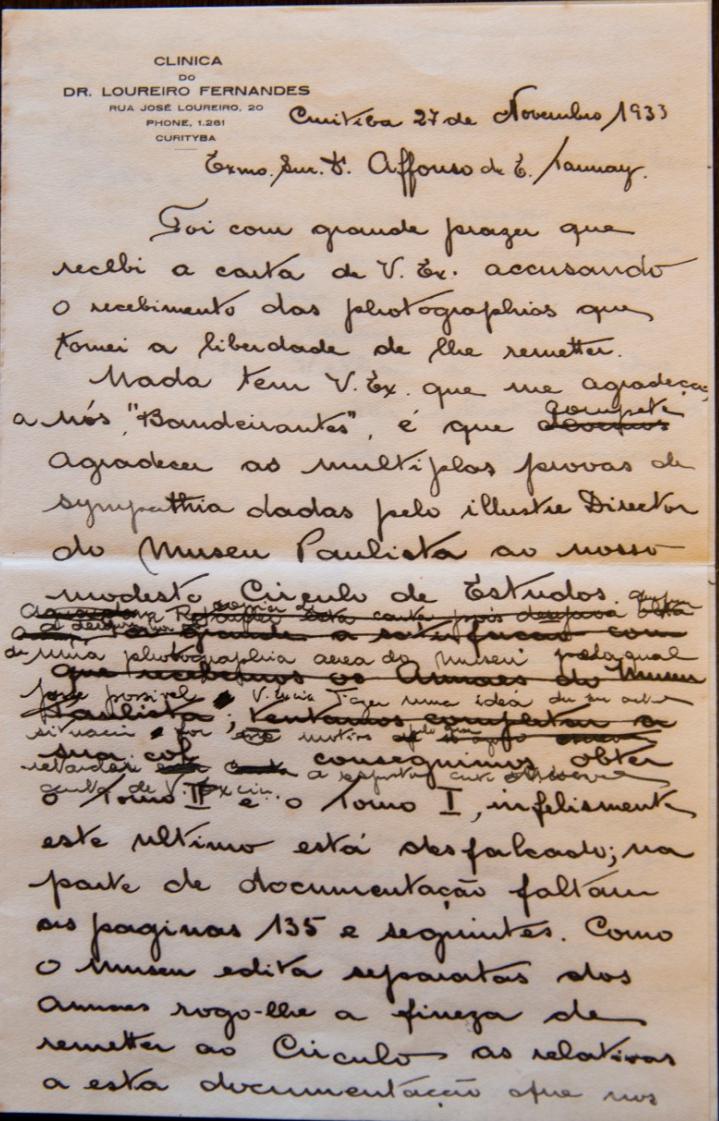 CLINICA
DO
DR. LOUREIRO FERNANDES
RUA JOSÉ LOUREIRO, 20
PHONE, 1.261
CURITYBA
Curitiba 27 de Novembro 1933
Exmo. Snr. Dr. Affonso de E. Taunay.
Foi com grande prazer que
recebi a carta de V. Ex. accusando
o recebimento das photographias que
tomei a liberdade de lhe remetter.
Nada tem V. Ex. que me agradecer,
compete
a nós, "Bandeirantes", é que devemos
agradecer as multiplas provas de
sympathia dadas pelo illustre Director
do Museu Paulista ao nosso
modesto Circulo de Estudos.
esta carta pois desejava
grande a satisfacao com
uma photographia aerea do Museu pela qual
que recebemos os Annaes do Museu
fosse possivel V. Excia fazer uma idéa de
Paulista; tentamos completar a
situação por motivo
sua col conseguimos obter
retardei a resposta
carta de V. Excia.
o Tomo II e o Tomo I, infelismente
este ultimo está desfalcado; na
parte de documentação faltam
as paginas 135 e seguintes. Como
o Museu edita separatas dos
Annaes rogo-lhe a fineza de
remetter ao Circulo as relativas
a esta documentação que nos